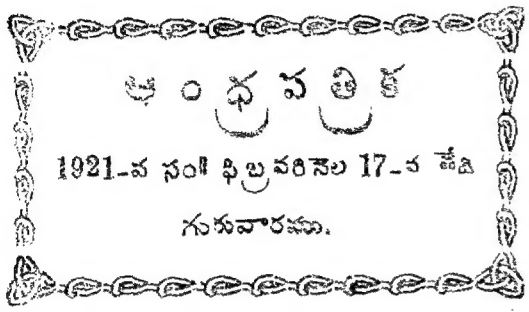 ఆంధ్రపత్రిక
1921-వ సం॥ ఫిబ్రవరినెల 17-వ తేది
గురువారము.